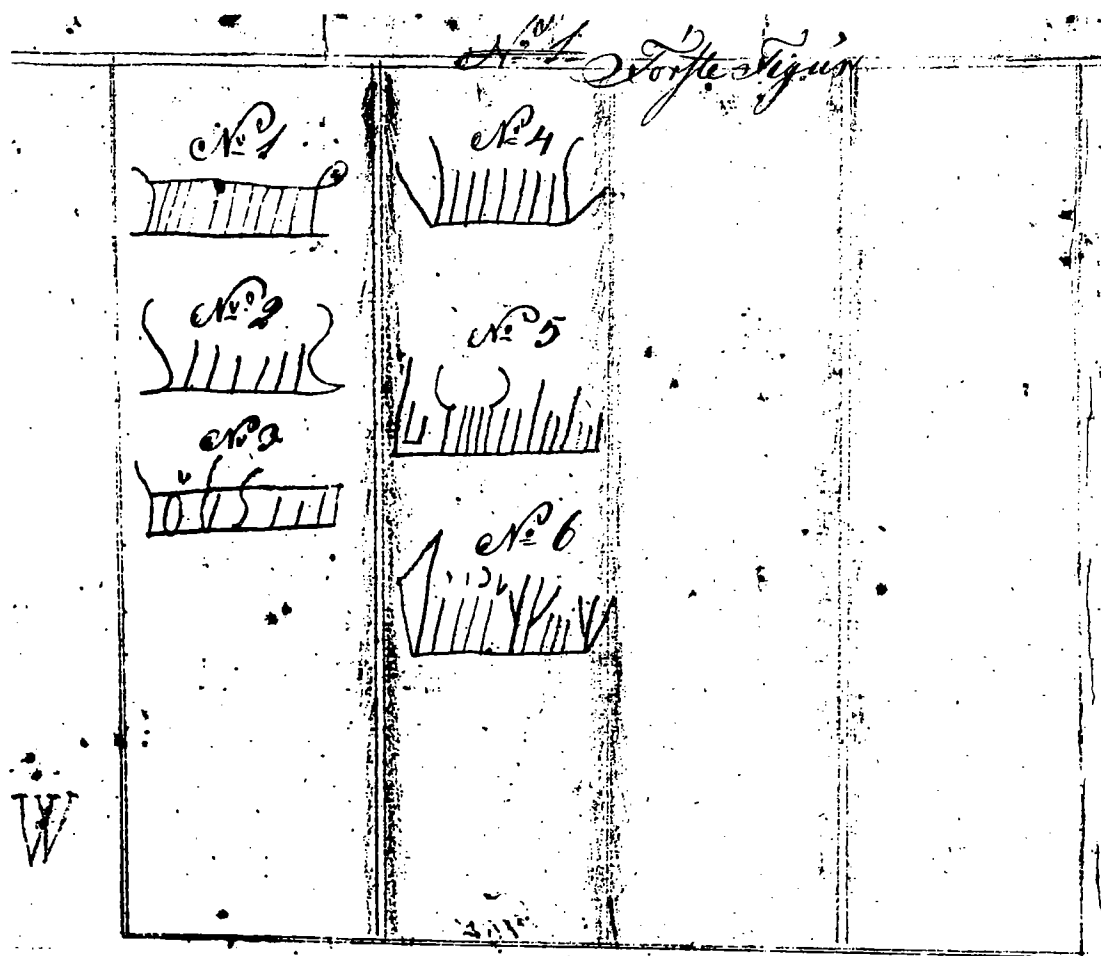 N.º 1. Förste Figur
Nº 1
Nº 2
Nº 3
Nº 4
Nº 5
Nº 6
W